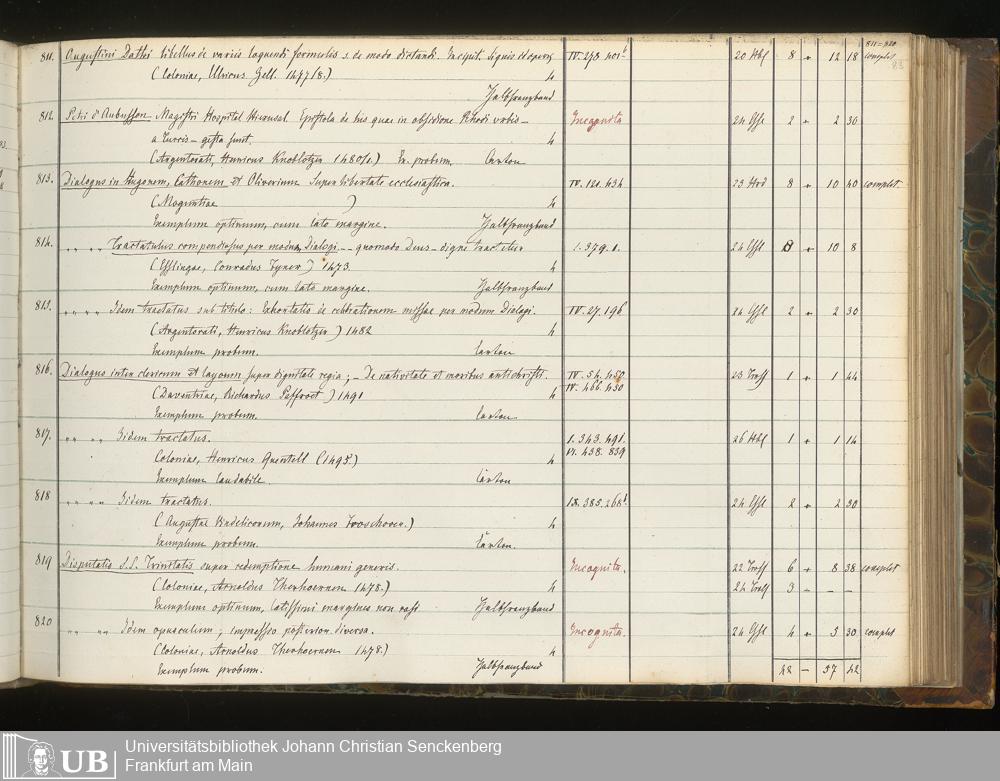 811=820
811. Augustini Dathi libellus de variis loquendi formulis s. de modo dictandi. Incipit. signis et operis IV. 278 401b 20 Hbf 8 " 12 18 complet 83
(Coloniae, Ulricus Zell. 1477/8.) 4
Halbfranzband
812. Petri d'Aubusson Magistri Hospital Hierusal Epistola de his quae in obsidione Rhodi urbis – Incognita 24 2 " 2 30
a Turcis – gesta sunt. 4
(Argentorati, Henricus Knoblotzer 1480/1.) Ex. probum. Carton
813. Dialogus in Hugonem, Cathonem et Oliverium super libertate ecclesiastica. IV. 121. 434 23 8 " 10 40 complet.
(Moguntiae ) 4
Exemplum optimum, cum lato margine. Halbfranzband
814. " " " " Tractatulus compendiosus per modum Dialogi – – quomodo Deus – digne tractetur 1. 379. 1. 24 8 " 10 8
(Esslingae, Conradus Fyner) 1473. 4
Exemplum optimum, cum lato margine. Halbfranzband
815. " " " " Idem tractatus sub titulo: Exhortatio de celebratione missae per modum Dialogi. IV. 27. 196 24 2 " 2 30
(Argentorati, Henricus Knoblotzer) 1482 4
Exemplum probum. Carton
816. Dialogus inter clericum et laycum super dignitate regia; – De nativitate et moribus antichristi. IV. 54. 450 23 1 " 1 44
IV. 466. 450
(Daventriae, Richardus Paffroet) 1491 4
Exemplum probum. Carton
817. " " " " Iidem tractatus. 1. 343. 491. 26 Hbf 1 " 1 14
VI. 438. 839
Coloniae, Henricus Quentell (1495.) 4
Exemplum laudabile. Carton
818 " " " " Iidem tractatus. IX. 385. 268d. 24 2 " 2 30
(Augustae Vindelicorum, Johannes Froschover.) 4
Exemplum probum. Carton.
819 Disputatio S.S. Trinitatis super redemptione humani generis. Incognita. 22 6 " 8 38 complet
(Coloniae, Arnoldus Therhoernen 1478.) 4 24 3 – – –
Exemplum optimum, latissimi margines non rasi Halbfranzband
820 " " " " Idem opusculum; impressio posterior diversa. Incognita. 24 4 " 5 30 complet
(Coloniae, Arnoldus Therhoernen 1478.) 4
Exemplum probum. Halbfranzband 42 – 57 42
UB
Universitätsbibliothek Johann Christian Senckenberg
Frankfurt am Main